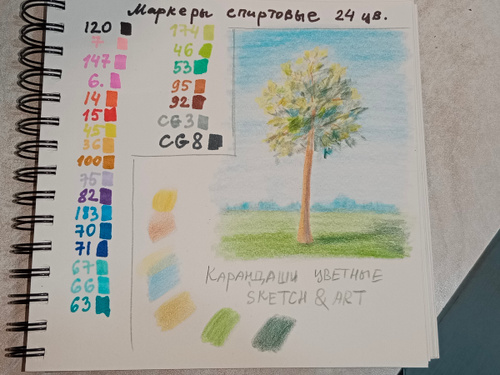 Маркеры спиртовые 24 цв.
120
7
147
6.
14
15
45
36
100
75
82
183
70
71
67
66
63
174
46
53
95
92
CG3
CG8
Карандаши цветные
SKETCH & ART